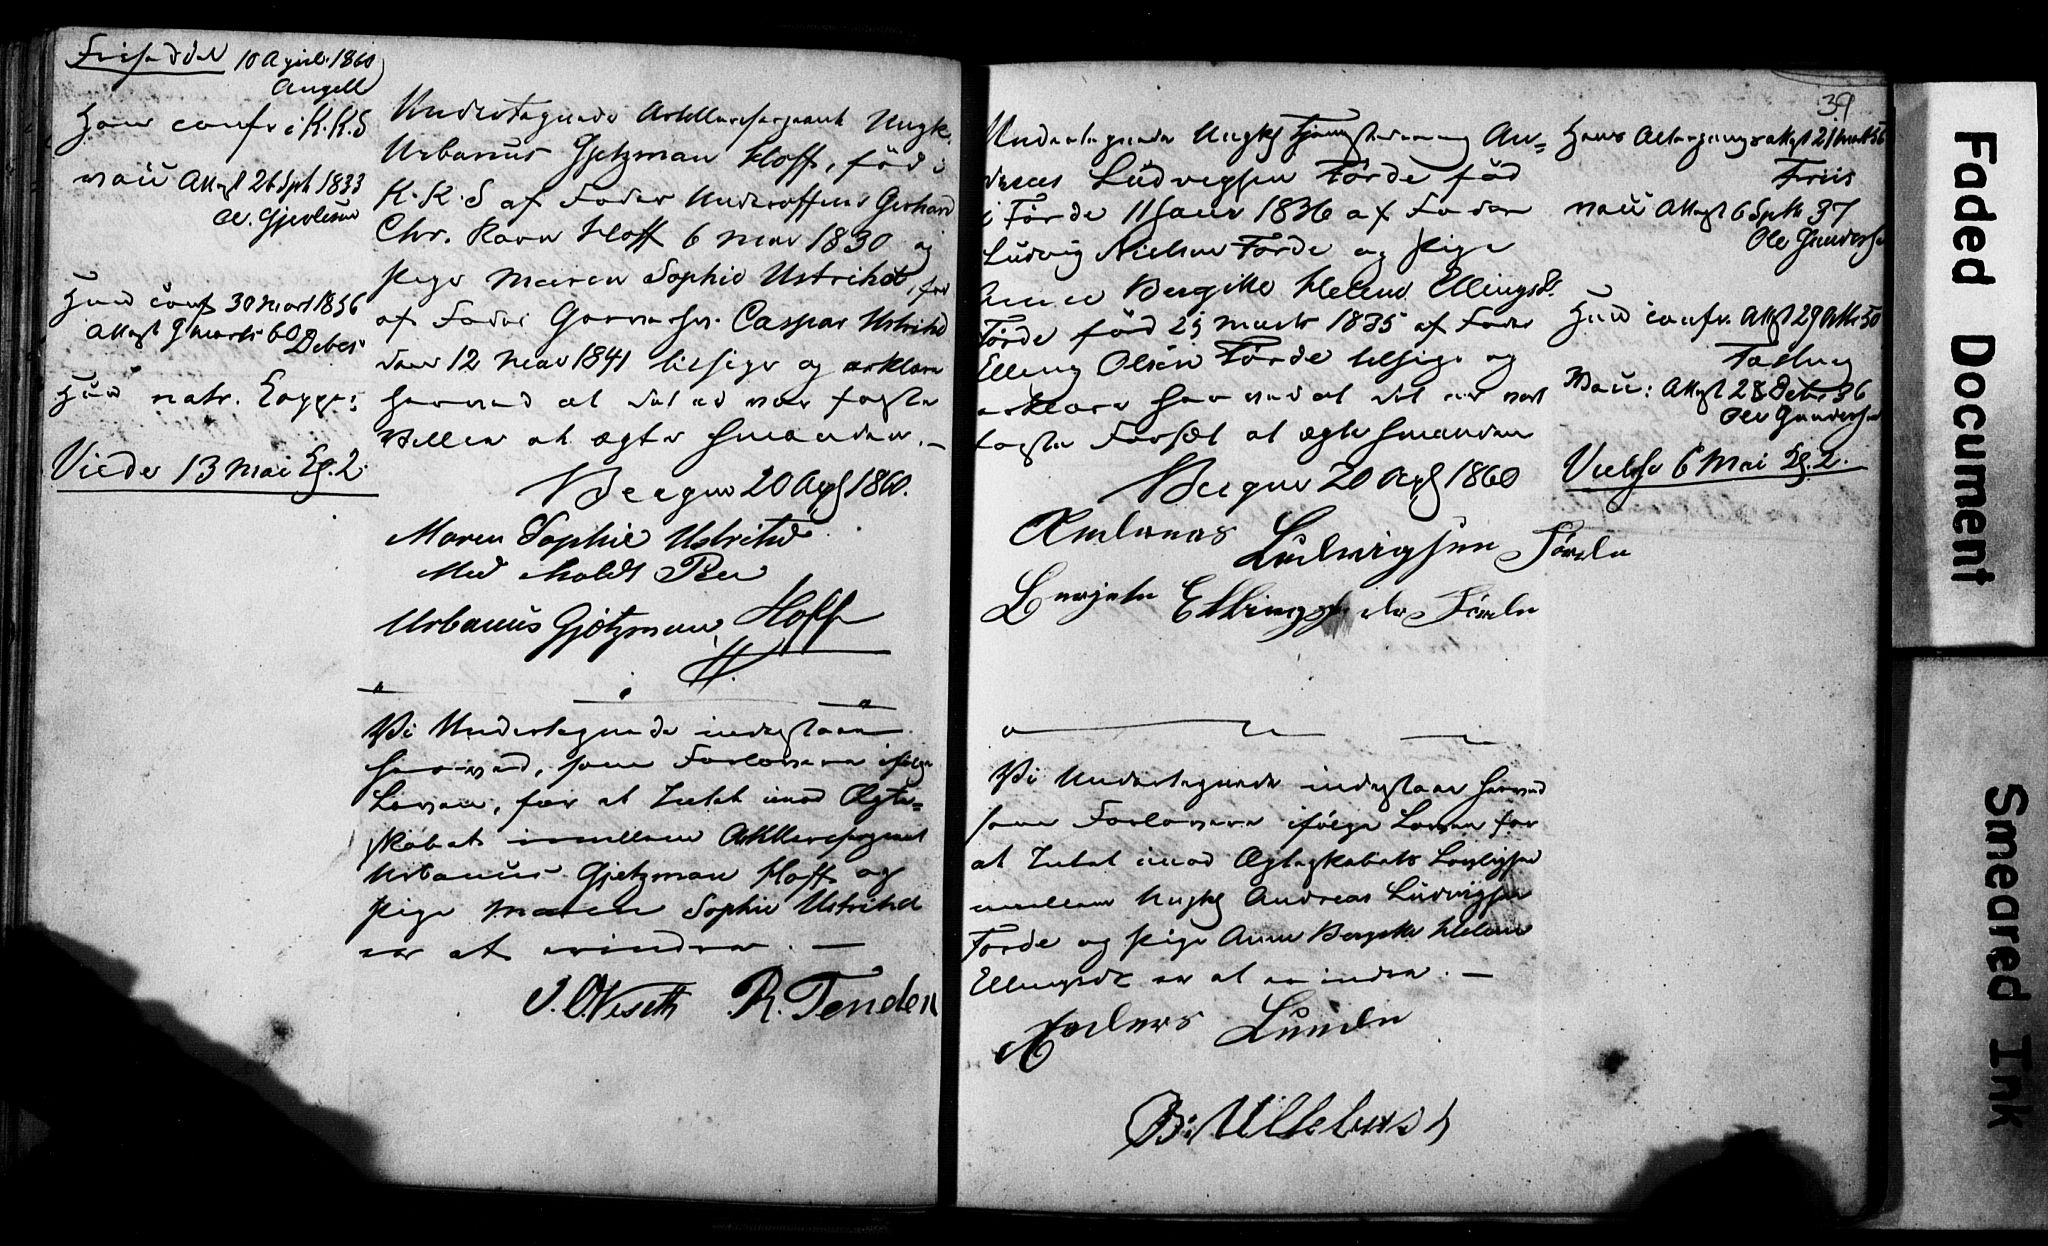 Friseddel 10 April 1860
Angell
Hans conf i K.K.S
vacc Attest 26 Spt 1833
Cl. Gjertsen
Hun conf 30 Mart 1856
Attest 9 Marts 60 Debes
Hun natr. Kopper
Viede 13 Mai Kl. 2.
Undertegnede Artillerisergeant Ungk.
Urbanus Gjetzman Hoff, född i
K.K.S af Fader Underofficer Gerhard
Chr. Ravn Hoff 6 Mai 1830 og
Pige Maren Sophie Ustrihd, fød
af Fader Caspar Ustrihd
den 12 Mai 1841 tilsige og erklære
herved at det er vor faste
Villie at ægte hinanden. –
Bergen 20 April 1860.
Maren Sophie Ustrihd
Med holdt Pen
Urbanus Gjetzman Hoff
Vi Undertegnede indestaae
herved, som Forlovere ifølge
Loven, for at Intet imod Ægte=
skabet imellem Artillerisergeant
Urbanus Gjetzman Hoff og
Pige Maren Sophie Ustrihd
er at erindre. –
R. Tenden
39
Undertegnede Ungkj An=
dreas Ludvigsen Førde fød
i Førde 11 Januar 1836 af Fader
Ludvig Nielsen Førde og Pige
Anne Bergitte Helene Ellingsdr.
Førde fød 25 Marts 1835 af Fader
Elling Olsen Førde tilsige og
erklære herved at det er vort
faste Forsæt at ægte hinanden
Bergen 20 April 1860
Andreas Ludwigsen Förde
Berjete Ellings der Förde
Vi Undertegnede indestaae herved
som Forlovere ifølge Loven for
at Intet imod Ægteskabets Lovlighed
imellem Ungkj Andreas Ludvigsen
Førde og Pige Anne Bergitte Helene
Ellingsdr er at erindre. –
Anders Lunde
Hans Altergangsattest 21
Friis
vacc Attest 6 Spt 37
Ole Gundersen
Hun confr. Attest 29 50
Vacc: Attest 28 36
Ole Gundersen
Vielse 6 Mai Kl. 2.
Faded Document
Smeared Ink